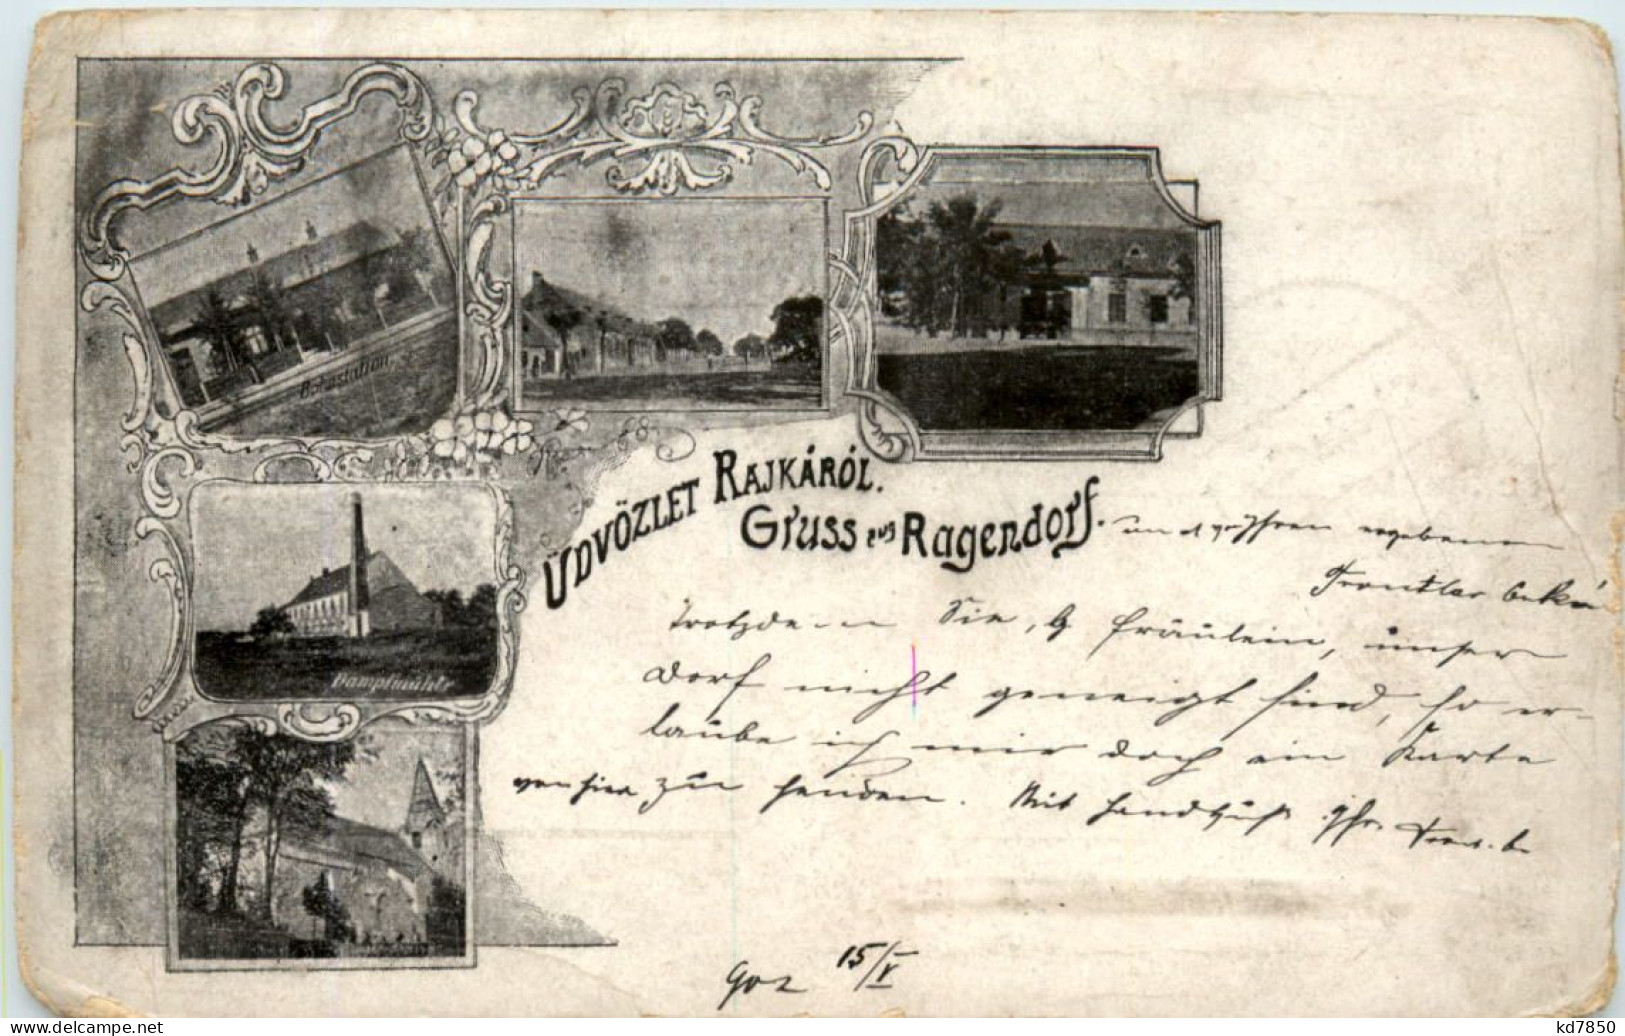 Bahnstation
Dampfmühle
ÜDVÖZLET RAJKÁRÓL.
Gruss aus Ragendorf.
und ergebenen
Trotzdem Sie, g Fräulein, unser
Dorf nicht geneigt sind, so er-
laube ich mir doch ein Karte
von hier zu senden. Mit Handkuß Ihr
902 15/V
kd7850